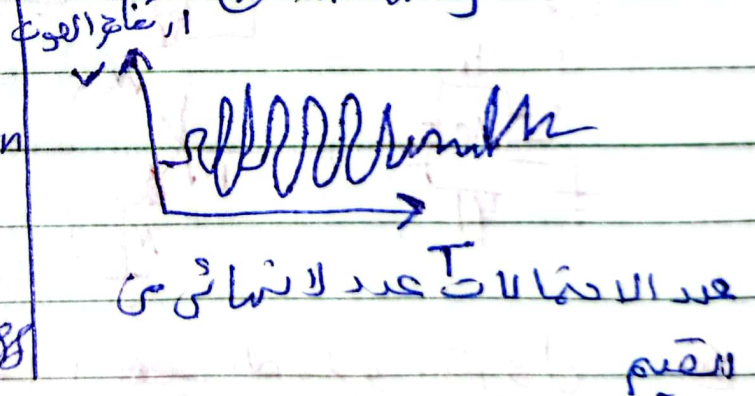 ارتفاع الصوت
V
T
عدد الاحتمالات عدد لا نهائي من
القيم